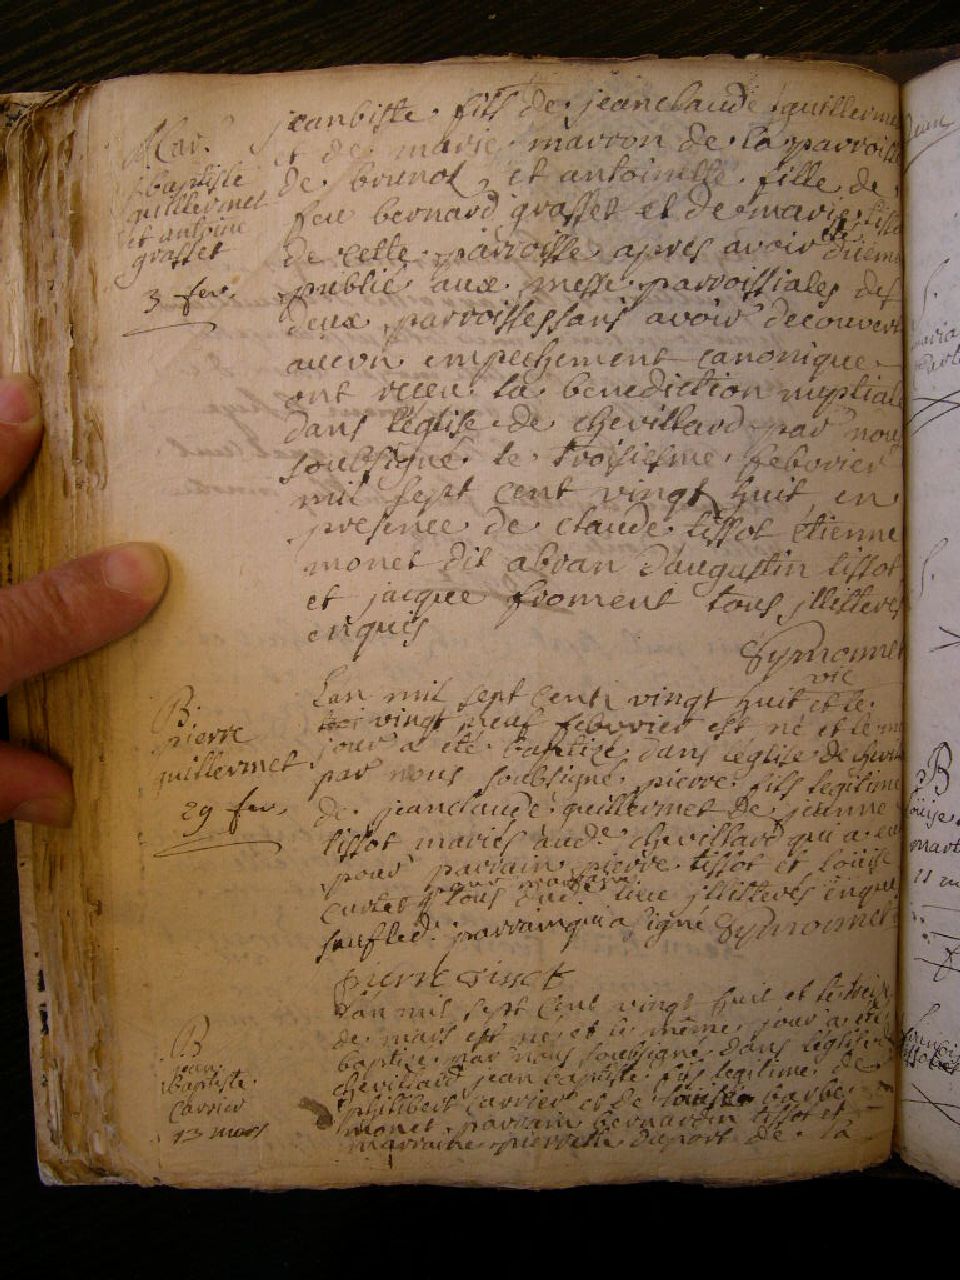 Mar.
baptiste
guillermet
et antoine
grasset
3 fev.
jeanbiste fils de jeanclaude guillerme
et de marie marron de la parroisse
de brunol, et antoinette fille de
feu bernard grasset et de marie tisso
de cette parroisse apres avoir
publié aux messe parroissiales des
deux parroisses sans avoir decouvert
aucun empechement canonique
ont receu la benediction nuptiale
dans l'église de chevillard par nous
soubsigné le troisiesme febvrier
mil sept cent vingt huit en
presence de claude tissot étienne
monet dit abran d'augustin tissot
et jacque froment tous jllitteres
enquis
Symonnet
vic
B.
pierre
guillermet
29 fev.
Lan mil sept cent vingt huit et le
vingt neuf febvrier est né et le me
jour a été baptizé dans leglise de chevi
par nous soubsigné pierre fils legitime
de jeanclaude guillermet de jeanne
tissot mariés aud. chevillard qui a eu
pour parrain pierre tissot et loüise
carlet pour marraine tous dud. lieu jllitterés enquis
saufled. parrain qui a signé Symonnet
pierre Tissot
B
jean
baptiste
Carrier
13 mars
Lan mil sept cent vingt huit et le treize
de mars est né et le même jour a été
baptizé par nous soubsigné dans l'église de
chevillard jean baptiste fils legitime de
philibert carrier et de barbe
monet parrain bernardin tissot et
marraine duport de la